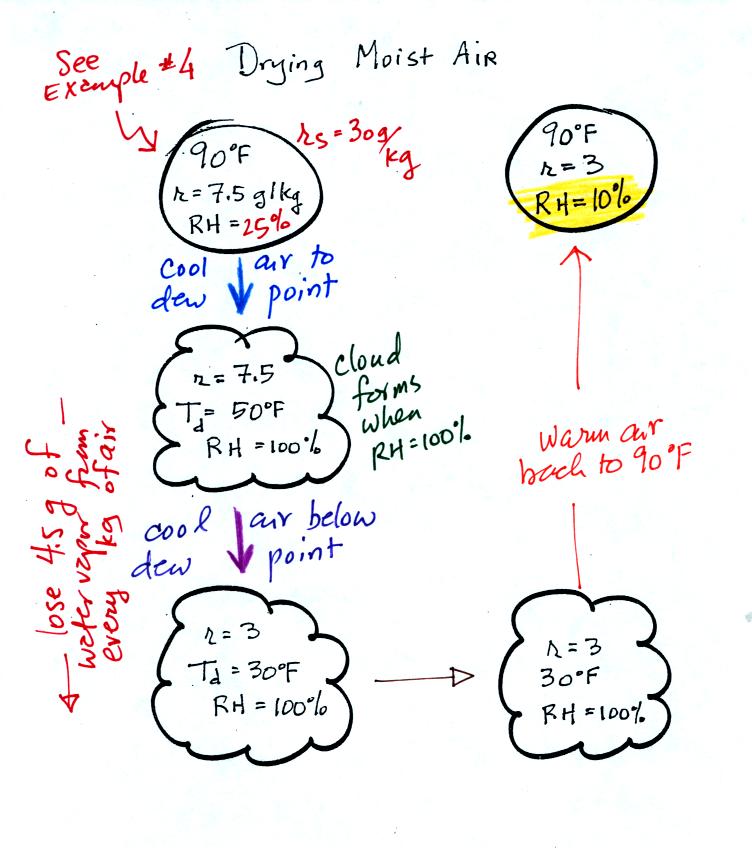 See
Example #4
Drying Moist Air
90°F
r = 7.5 g/kg
RH = 25%
rs = 30g/
kg
cool air to
dew point
r = 7.5
Td = 50°F
RH = 100%
cloud
forms
when
RH=100%
lose 4.5 g of
water vapor from
every kg of air
cool air below
dew point
r = 3
Td = 30°F
RH = 100%
r = 3
30°F
RH = 100%
warm air
back to 90°F
90°F
r = 3
RH = 10%